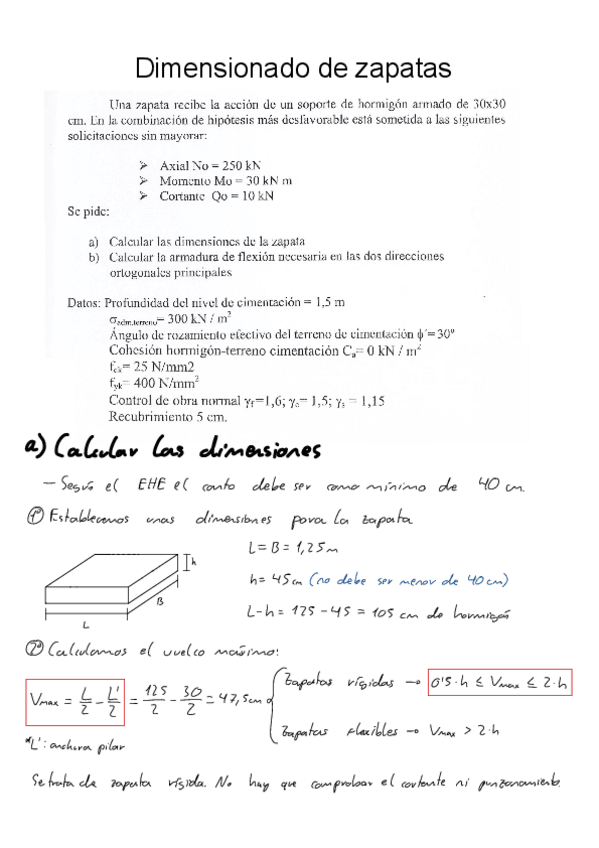 Dimensionado de zapatas
Una zapata recibe la acción de un soporte de hormigón armado de 30x30
cm. En la combinación de hipótesis más desfavorable está sometida a las siguientes
solicitaciones sin mayorar:
➢ Axial No = 250 kN
➢ Momento Mo = 30 kN m
➢ Cortante Qo = 10 kN
Se pide:
a) Calcular las dimensiones de la zapata
b) Calcular la armadura de flexión necesaria en las dos direcciones
ortogonales principales
Datos: Profundidad del nivel de cimentación = 1,5 m
σadm.terreno= 300 kN / m²
Ángulo de rozamiento efectivo del terreno de cimentación ϕ´=30º
Cohesión hormigón-terreno cimentación Ca= 0 kN / m²
fck= 25 N/mm2
fyk= 400 N/mm²
Control de obra normal γf=1,6; γc= 1,5; γs = 1,15
Recubrimiento 5 cm.
a) Calcular las dimensiones
- Según el EHE el canto debe ser como mínimo de 40 cm.
1º Establecemos unas dimensiones para la zapata
L = B = 1,25 m
h = 45 cm (no debe ser menor de 40 cm)
L - h = 125 - 45 = 105 cm de hormigón
h
B
L
2º Calculamos el vuelco máximo:
Vmax = L/2 - L'/2 = 125/2 - 30/2 = 47,5 cm
Zapatas rígidas → 0'5·h ≤ Vmax ≤ 2·h
Zapatas flexibles → Vmax > 2·h
*L': anchura pilar
Se trata de zapata rígida. No hay que comprobar el cortante ni punzonamiento.